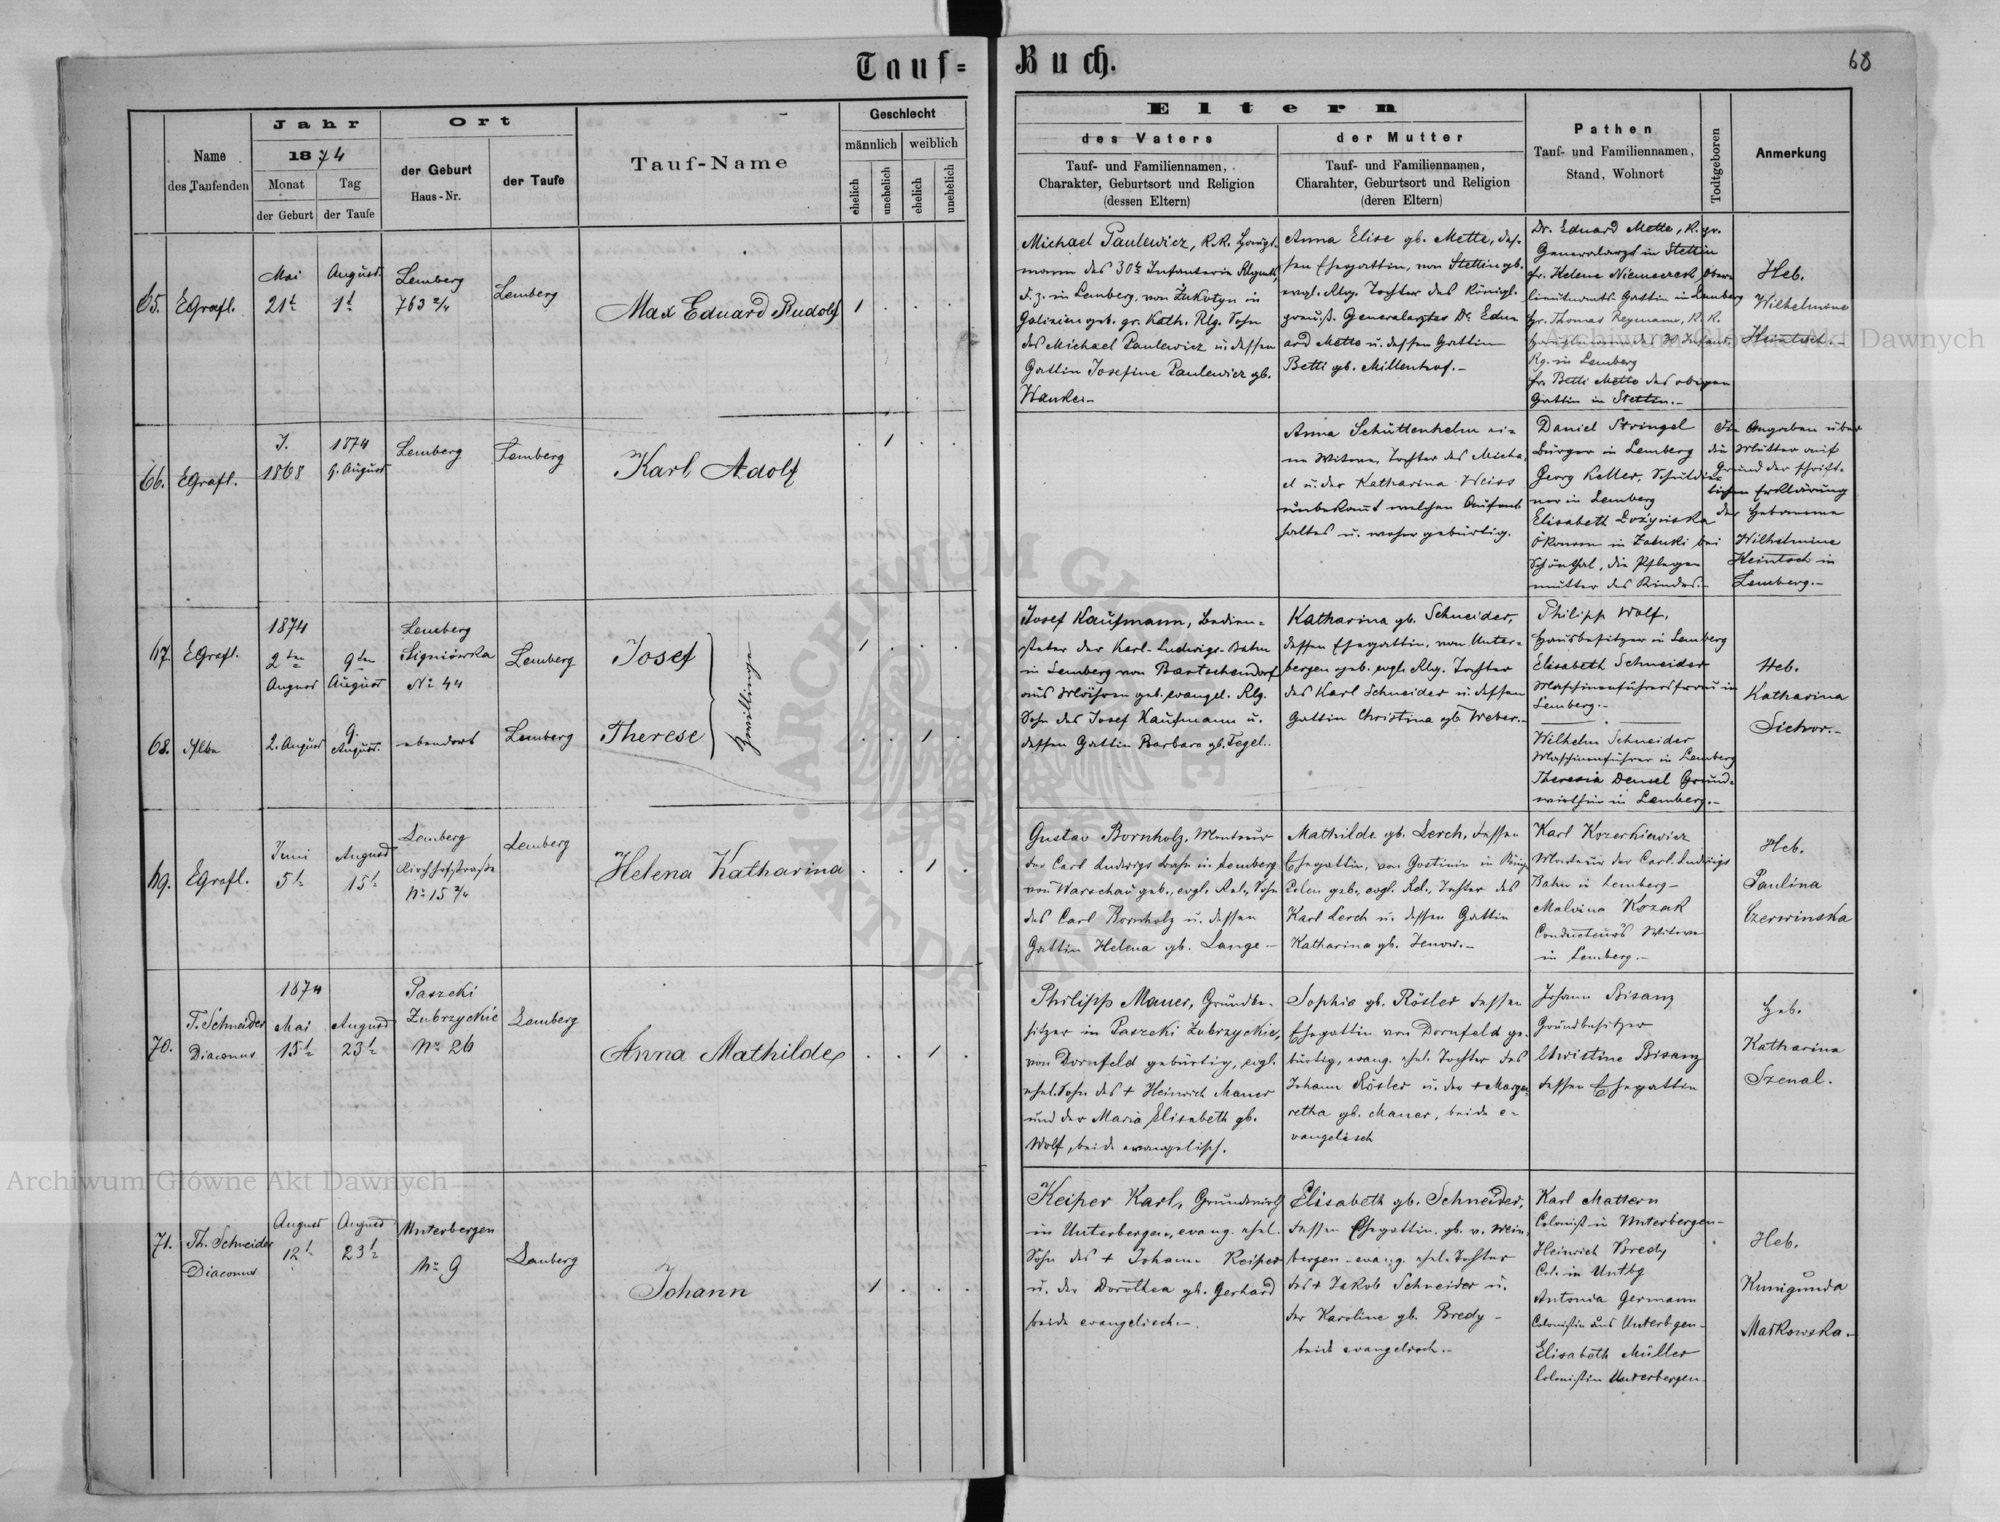 Tauf=
Buch.
68
Name
des Taufenden
Jahr
1874
Monat
der Geburt
Tag
der Taufe
Ort
der Geburt
Haus-Nr.
der Taufe
Tauf-Name
Geschlecht
männlich
weiblich
ehelich
unehelich
ehelich
unehelich
Eltern
des Vaters
Tauf- und Familiennamen,
Charakter, Geburtsort und Religion
(dessen Eltern)
der Mutter
Tauf- und Familiennamen,
Charahter, Geburtsort und Religion
(deren Eltern)
Pathen
Tauf- und Familiennamen,
Stand, Wohnort
Todtgeboren
Anmerkung
65.
EGrafl.
Mai
21t
August
1t
Lemberg
763 2/4
Lemberg
Max Eduard Rudolf
1
Michael Paulewicz, K.K. Haupt-
mann des 30t Infanterie Regmts
d. z. in Lemberg, von Zukotyn in
Galizien geb. gr. Kath. Rlg. Sohn
des Michael Paulewicz u. dessen
Gattin Josefine Paulewicz gb.
Anna Elise gb. Mette, des-
sen Ehegattin, von Stettin gb.
evgl. Rlg. Tochter des Königl.
preuß. Generalarztes Dr. Edu-
ard Mette u. dessen Gattin
Betti gb. Millenhof.-
Dr. Eduard Mette, K. pr.
Generalarzt in Stettin
fr. Helene Niemeczek Ober-
lieutenants Gattin in Lemberg
Hr. Thomas Reymann, K.K.
Hauptmann d. 30 Infant.
Rg. in Lemberg
fr. Betti Mette des obigen
Gattin in Stettin.-
Heb.
Wilhelmine
Heintsch.-
66.
EGrafl.
J.
1868
1874
9. August
Lemberg
Lemberg
Karl Adolf
1
Anna Schüttenhelm ei-
ne Witwe, Tochter des Micha-
el u. der Katharina Weiss
unbekannt welchen Aufent-
haltes u. woher gebürtig.
Daniel Stringel
Bürger in Lemberg
Georg Keller, Schuldie-
ner in Lemberg
Elisabeth Łożyńska
Ökonom in Zaluki bei
Schönthal, die Pflege-
mutter des Kindes.-
Die Angaben über
die Mutter auf
Grund der schrift-
lichen Erklärung
der Hebamme
Wilhelmine
Heintsch in
Lemberg.-
67.
EGrafl.
1874
2ten
August
9ten
August
Lemberg
Signiówka
No 44
Lemberg
Josef
Zwillinge
1
Josef Kaufmann, Bedien-
steter der Karl-Ludwigs-Bahn
in Lemberg von Bartschendorf
aus Mähren geb. evangel. Rlg.
Sohn des Josef Kaufmann u.
dessen Gattin Barbara gb. Tegel.
Katharina gb. Schneider,
dessen Ehegattin, von Unter-
bergen geb. evgl. Rlg. Tochter
des Karl Schneider u. dessen
Gattin Christina gb. Weber.-
Philipp Wolf,
Hausbesitzer in Lemberg
Elisabeth Schneider
Maschinenführersfrau in
Lemberg.-
Heb.
Katharina
68.
2. August
9.
August.
ebendort
Lemberg
Therese
1
Wilhelm Schneider
Maschinenführer in Lemberg
Theresia Densel Grund-
wirthin in Lemberg.-
69.
EGrafl.
Juni
5t
August
15t
Lemberg
Kirchhofstraße
No 15 2/4
Lemberg
Helena Katharina
1
Gustav Bornholz, Monteur
der Carl Ludwigs Bahn in Lemberg
von Warschau geb., evgl. Rel., Sohn
des Carl Bornholz u. dessen
Gattin Helena gb. Lange -
Mathilde gb. Lerch, dessen
Ehegattin, von Gostinin in König.
Polen geb., evgl. Rel., Tochter des
Karl Lerch u. dessen Gattin
Katharina gb. Jenow.-
Karl Kozerkiewicz
Monteur der Carl. Ludwigs
Bahn in Lemberg -
Malvina Kozak
Conducteurs Witwe
in Lemberg.-
Heb.
Paulina
Czerwinska
70.
T. Schneider
Diaconus
1874
Mai
15t
August
23t
Paszeki
Zubrzyckie
No 26
Lemberg
Anna Mathilde
1
Philipp Mauer, Grundbe-
sitzer in Paszeki Zubrzyckie,
von Dornfeld gebürtig, evgl.
ehel. Sohn des + Heinrich Mauer
und der Maria Elisabeth gb.
Wolf, beide evangelisch.
Sophie gb. Rösler dessen
Ehegattin von Dornfeld ge-
bürtig, evang. ehel. Tochter des
Johann Rösler u. der + Marga-
retha gb. Mauer, beide e-
vangelisch
Johann Bisanz
Grundbesitzer
Christine Bisanz
dessen Ehegattin
Heb.
Katharina
Szenal.
71.
Th. Schneider
Diaconus
August
12t
August
23t
Unterbergen
No 9
Lemberg
Johann
1
Keiper Karl, Grundwirth
in Unterbergen, evang. ehel.
Sohn des + Johann Keiper
u. der Dorothea gb. Gerhard
beide evangelisch.-
Elisabeth gb. Schneider,
dessen Ehegattin, gb. v. Wein-
bergen evang. ehel. Tochter
des + Jakob Schneider u.
der Karoline gb. Bredy -
beide evangelisch.-
Karl Mattern
Colonist in Unterbergen-
Heinrich Bredy
Col. in Untbg
Antonia Germann
Colonistin aus Unterbgen-
Elisabeth Müller
Colonistin Unterbergen-
Heb.
Kunigunda
Markowska.
Archiwum Główne Akt Dawnych
Archiwum Główne Akt Dawnych
ARCHIWUM GŁÓWNE AKT DAWNYCH